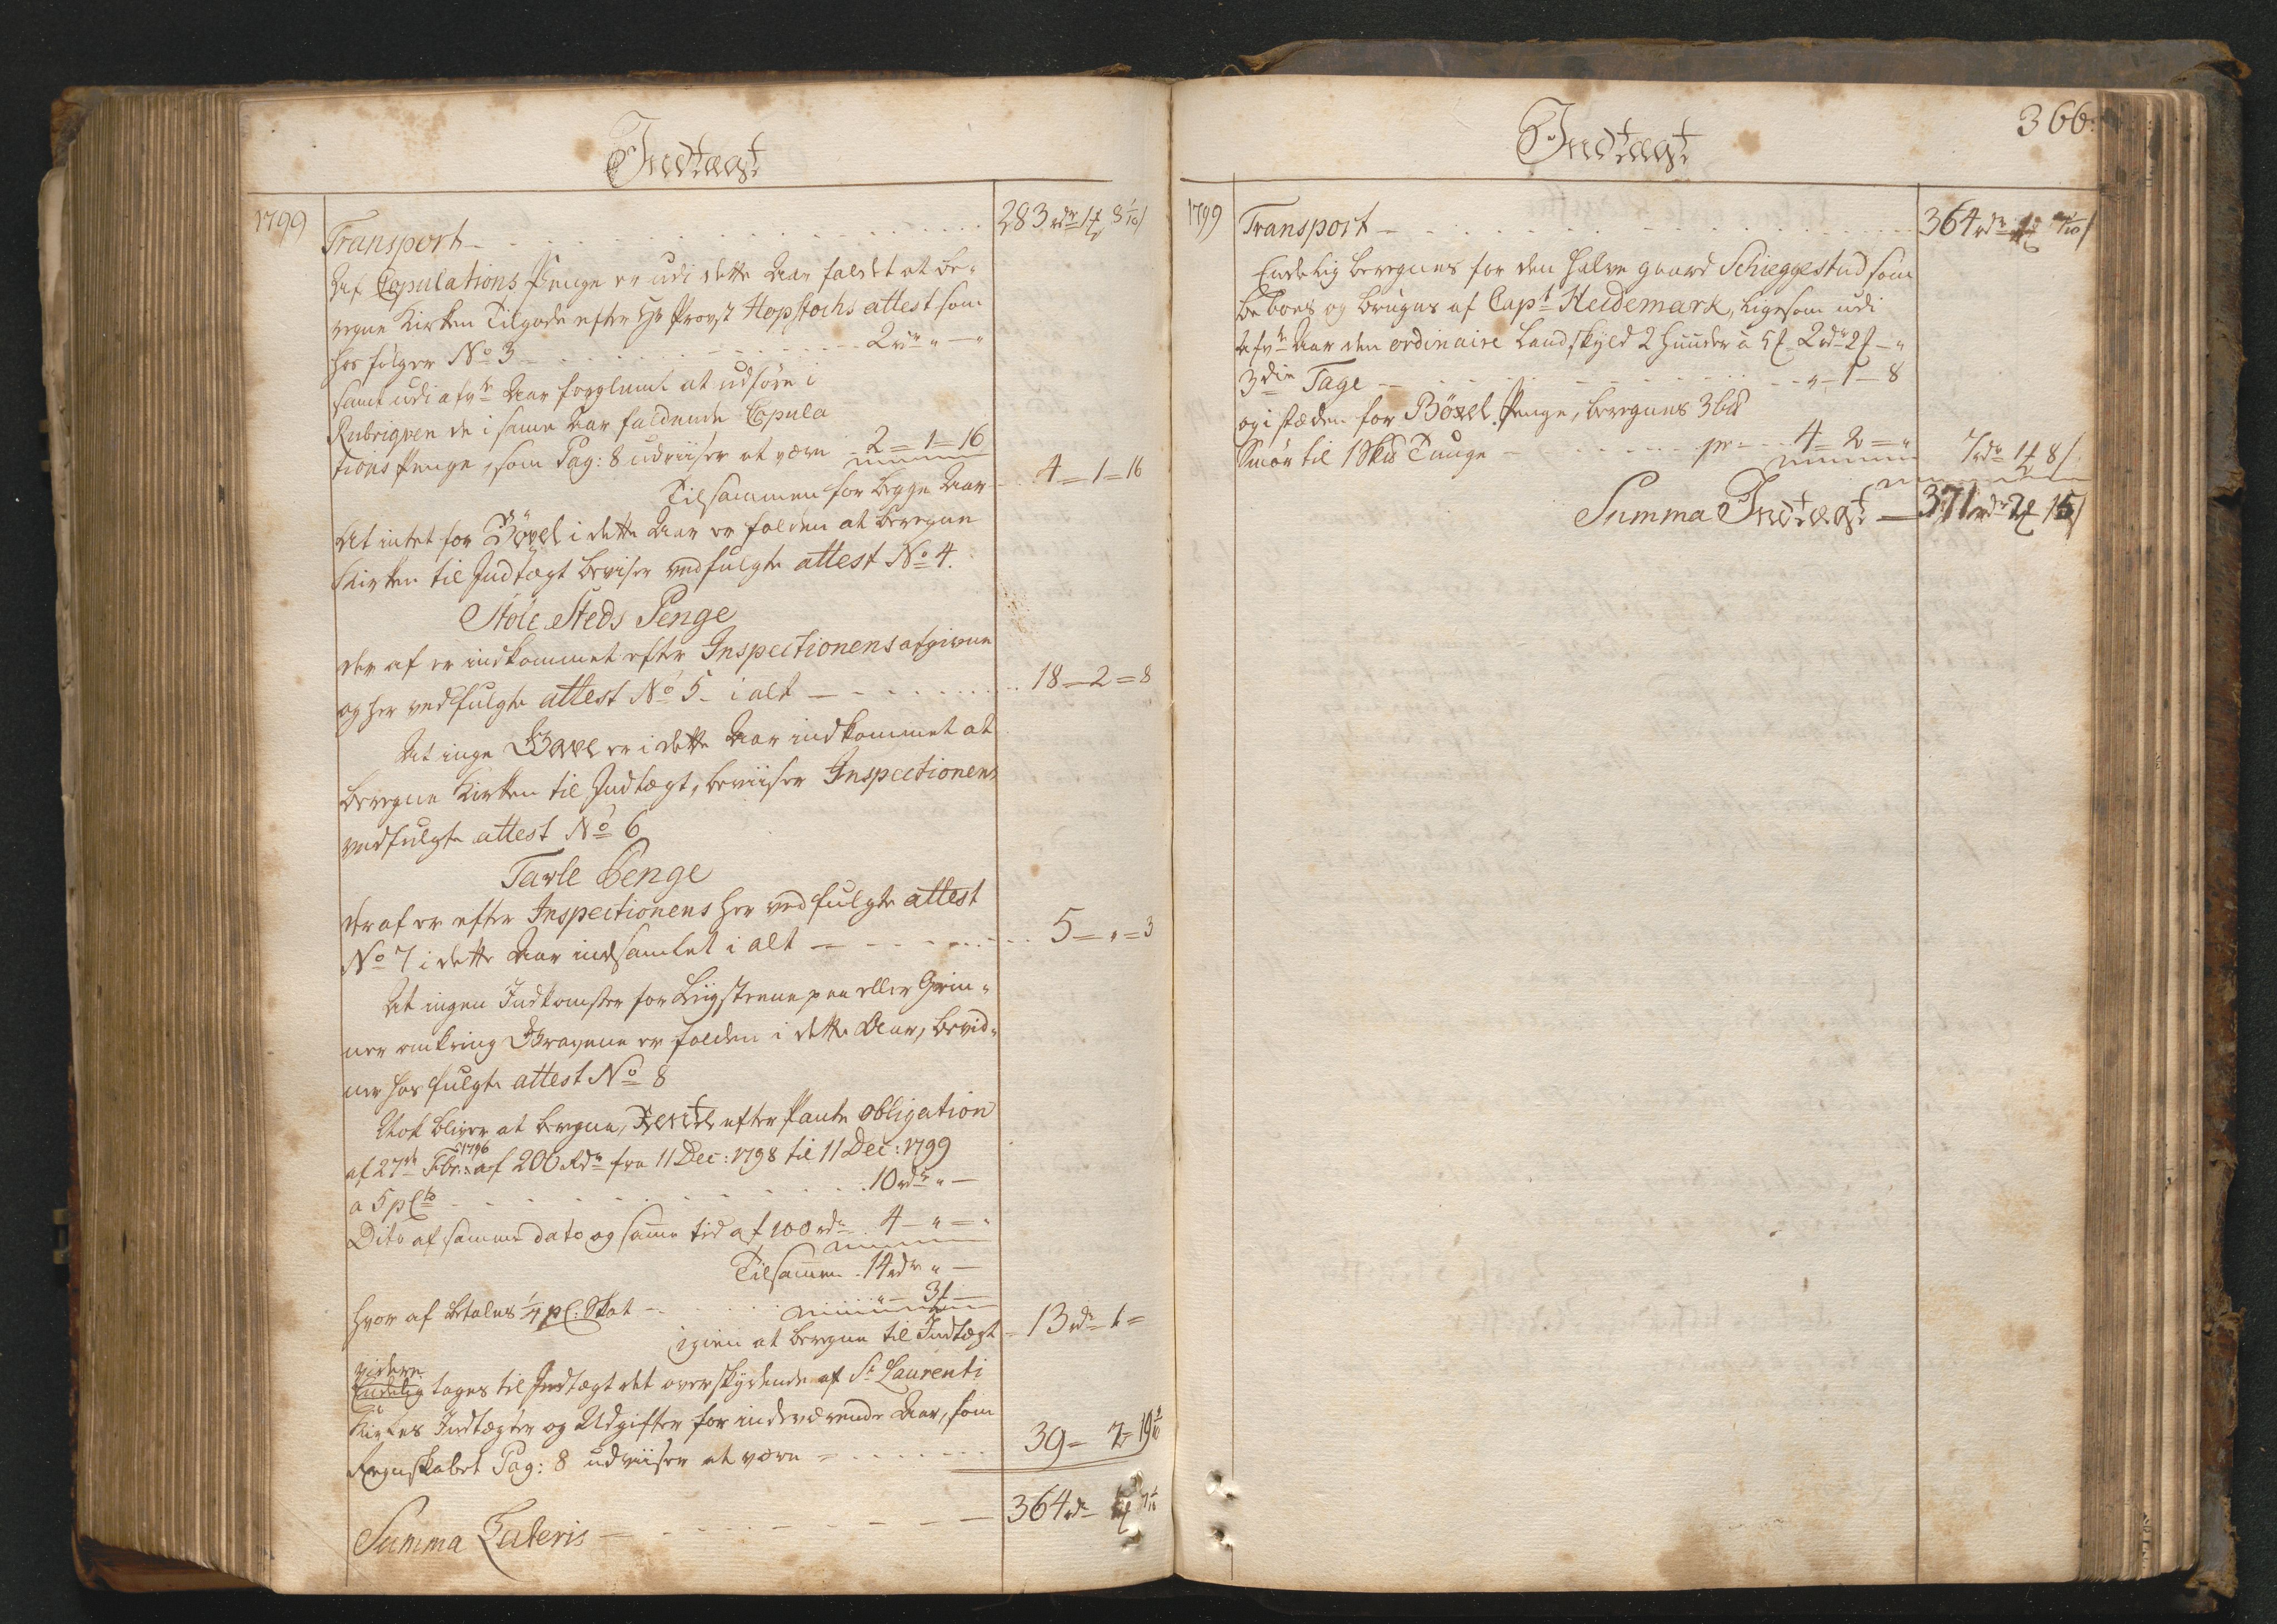 Indtægt
1799
Transport 283 rdr 1 8 1/10
Af Copulations Penge er udi dette Aar faldet at be-
regne Kirken Tilgode efter Hr Provst Hopstochs attest som
her følger No 3 2 rdr " - "
samt udi afvte Aar forglemt at udføre i
Rubriqven de i samme Aar faldende Copula
tions Penge, som Pag: 8 udviiser at være 2 = 1 = 16
Tilsammen for begge Aar 4 = 1 = 16
At intet for Böxel i dette Aar er falden at beregne
Kirken til Indtægt beviser vedfulgte attest No 4.
Stole Steds Penge
der af er indkommet efter Inspectionens afgivne
og her vedfulgte attest No 5 - i alt 18 = 2 = 8
At inge Gave er i dette Aar indkommet at
beregne Kirken til Indtægt, beviiser Inspectionens
vedfulgte attest No 6
Tavle Penge
der af er efter Inspectionens her vedfulgte attest
No 7 i dette Aar indsamlet i alt 5 = " = 3
At ingen Indkomster for Liigsteene paa eller Grin-
ner omkring Gravene er falden i dette Aar, bevid-
ner hos fulgte attest No 8
Nok bliver at beregne, Rente efter Pante obligation
1796
af 27de Fbr: af 200 Rdr fra 11 Dec: 1798 til 11 Dec: 1799
a 5 pCto 10 rdr " -
Dito af samme dato og same tid af 100 rdr 4 - " = "
Tilsammen 14 rdr " -
hvor af betales 1/4 pC: Skat " 3 -
igien at beregne til Indtægt 13 rdr 1 =
videre
Endelig tages til Indtægt det overskydende af St Laurenti
Kirkes Indtægter og Udgifter for indeværende Aar, som
Regnskabet Pag: 8 udviiser at være 39 = 2 = 19
Summa Lateris 364 rdr
366.
Indtægt
1799
Transport 364 rdr
Endelig beregnes for den halve gaard Schieggestad som
beboes og bruges af Capt Heidemark, ligesom udi
afvte Aar den ordinaire Landskyld 2 Hunder a 5 2 rdr 2 - "
3die Tage " - 1 - 8
og i stæden for Böxel Penge, beregnes 3 bd
Smør til 1 Skd Tunge pr 4 = 2 = " 7 rdr 1 8
Summa Indtægt 371 rdr 2 15